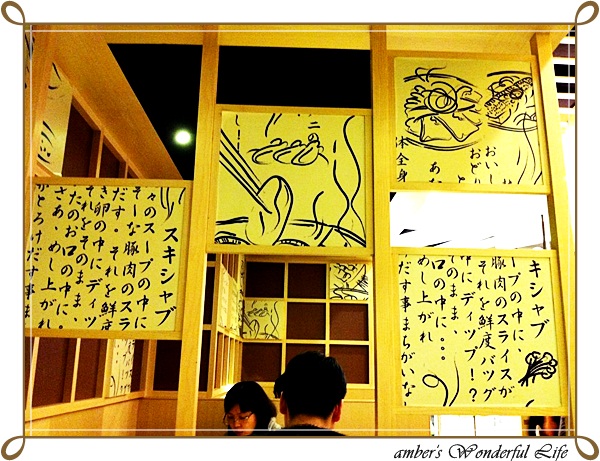 スキシャブ
々のスープの中に
そーな豚肉のスラ
だす。それを鮮度
き卵の中にディツ
それをそのまま、
たのお口の中に。
さあ、めし上がれ
がとろけだす事ま
二の
おいし
おどり
あな
体全身
キシャブ
ープの中に
豚肉のスライスが
それを鮮度バツグ
中にディップ!?
のまま、
口の中に…
めし上がれ
だす事まちがいな
amber's Wonderful Life